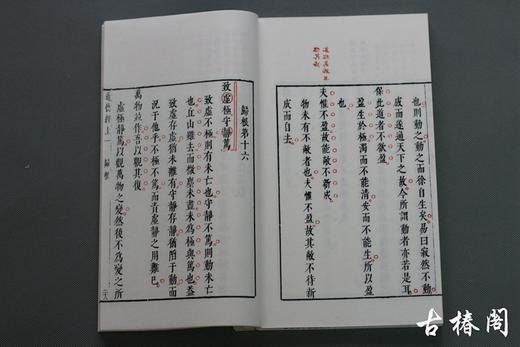 也則動之動之而徐自生矣易曰寂然不動
感而遂通天下之故今所謂動者亦若是耳
保此道者不欲盈
盈生於極濁而不能清安而不能生所以盈
也
夫惟不盈故能敝不新成
物未有不敝者也夫惟不盈故其敝不待新
成而自去
歸根第十六
致虛極守靜篤
致虛不極則有未亡也守靜不篤則動未亡
也丘山雖去而微塵未盡未為極與篤也蓋
致虛存虛猶未離有守靜存靜猶陷於動而
況于他乎不極不篤而責虛靜之用難已
萬物並作吾以觀其復
虛極靜篤以觀萬物之變然後不為變之所
道德經上 歸根
古椿閣